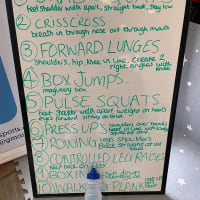 feet shoulder width apart, straight back, stay low
② CRISSCROSS
breath in through nose out through mouth
③ FORWARD LUNGES
shoulders, hip, knee in line. Create 2
right angles with
knee
④ BOX JUMPS
imaginary box
⑤ PULSE SQUATS
feet shoulder width apart, weight on heels
eyes forward
⑥ PRESS UPS
shoulders over hands
⑦ ROWING
legs shoulders
back straight at all
⑧ CONTROLLED LEG RAISES
keep back on floor
⑨ BOXING
⑩ WALK PLANK
sports.